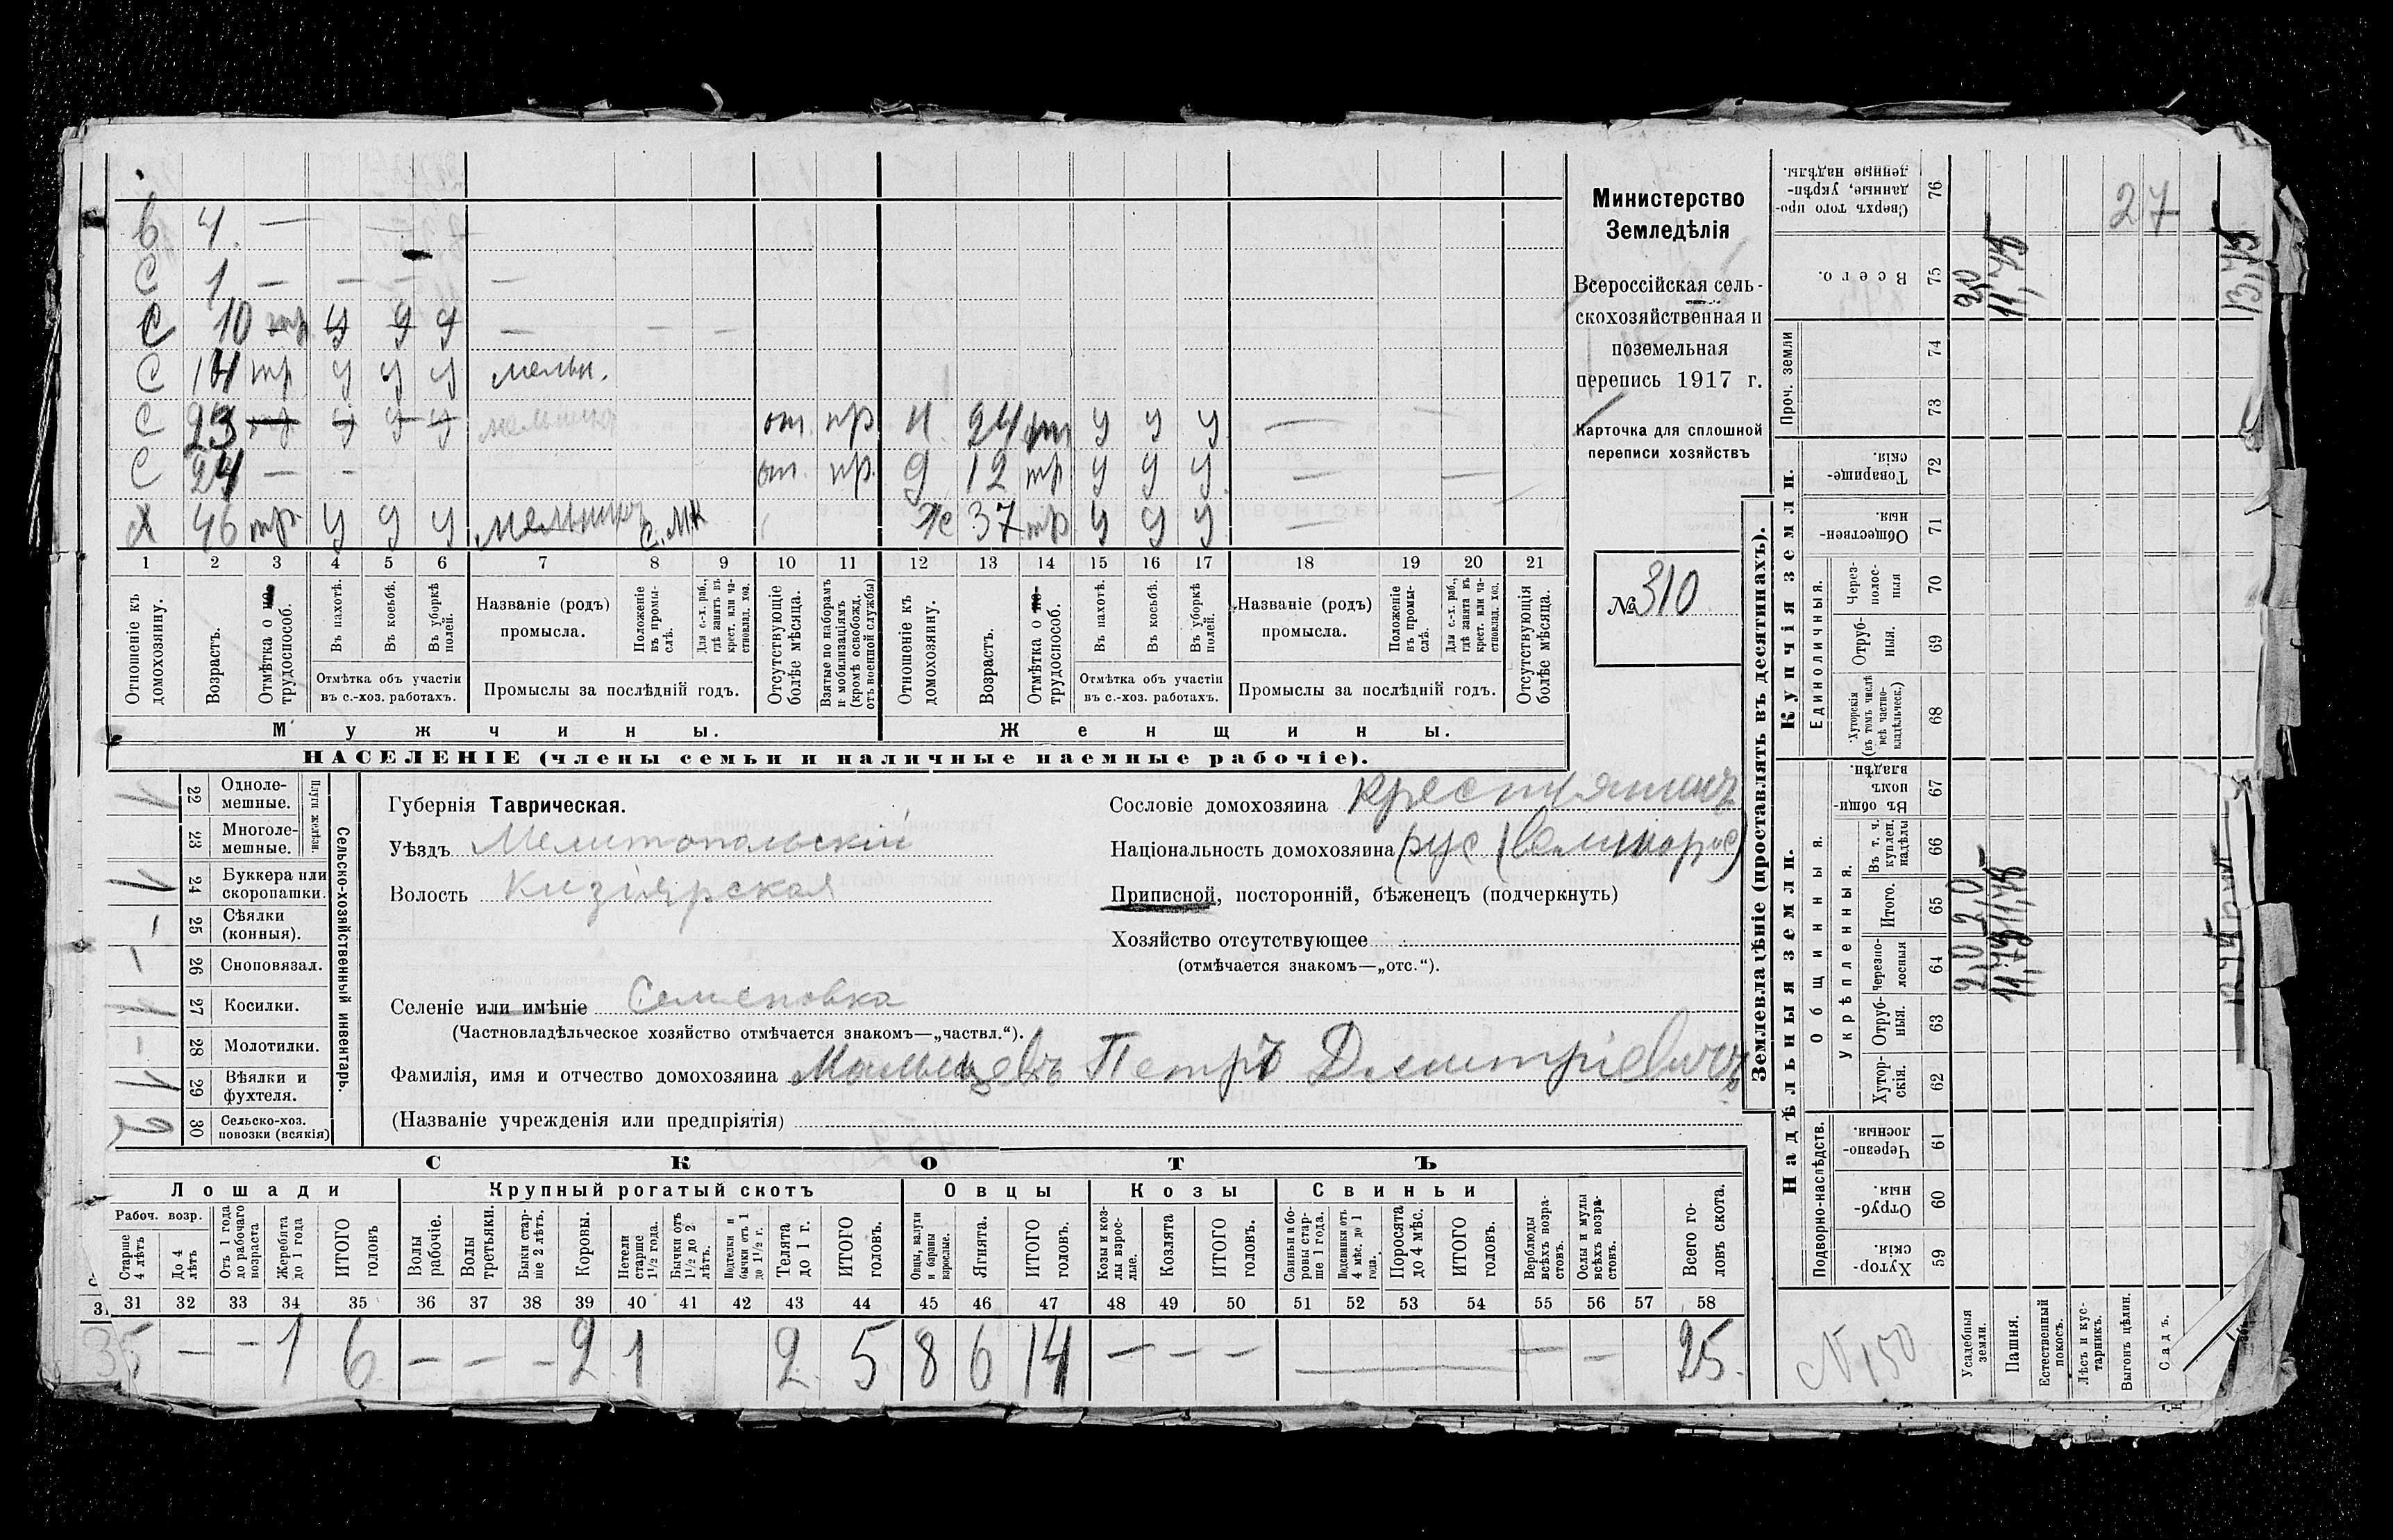 в 4 —
с 1 — — — —
с 10 — тр у у у — — —
с 14 тр у у у мельн.
с 23 тр у у у мельница от. пр. н 24 тр у у у —
с 24 — — от. пр. д 12 тр у у у — —
х 46 тр у у у мельникъ ж 37 тр у у у —
1 2 3 4 5 6 7 8 9 10 11 12 13 14 15 16 17 18 19 20 21
Отношеніе къ домохозяину.
Возрастъ.
Отмѣтка о не-трудоспособ.
Въ пахотѣ.
Въ косьбѣ.
Въ уборкѣ полей.
Отмѣтка объ участіи въ с.-хоз. работахъ.
Названіе (родъ) промысла.
Положеніе въ промыслѣ.
Для с.-х. раб., гдѣ занятъ въ крест. или частновлад. хоз.
Промыслы за послѣдній годъ.
Отсутствующіе болѣе мѣсяца.
Взятые по наборамъ и мобилизаціямъ (кромѣ освобожд. отъ военной службы)
Отношеніе къ домохозяину.
Возрастъ.
Отмѣтка о не-трудоспособ.
Въ пахотѣ.
Въ косьбѣ.
Въ уборкѣ полей.
Отмѣтка объ участіи въ с.-хоз. работахъ.
Названіе (родъ) промысла.
Положеніе въ промыслѣ.
Для с.-х. раб., гдѣ занята въ крест. или частновлад. хоз.
Промыслы за послѣдній годъ.
Отсутствующія болѣе мѣсяца.
Мужчины. Женщины.
НАСЕЛЕНІЕ (члены семьи и наличные наемные рабочіе).
Министерство
Земледѣлія
Всероссійская сель-
скохозяйственная и
поземельная
перепись 1917 г.
Карточка для сплошной
переписи хозяйствъ
№ 310
Сельско-хозяйственный инвентарь.
Плуги желѣзн.
22 Одноле-мешные. 1
23 Многоле-мешные.
24 Буккера или скоропашки. 1
25 Сѣялки (конныя). —
26 Сноповязал. —
27 Косилки. 1
28 Молотилки. —
29 Вѣялки и фухтеля. 1
30 Сельско-хоз. повозки (всякія) 2
Губернія Таврическая.
Уѣздъ Мелитопольскій
Волость Кизіярская
Селеніе или имѣніе Семеновка
(Частновладѣльческое хозяйство отмѣчается знакомъ—„частвл.“).
Сословіе домохозяина крестьянинъ
Національность домохозяина рус (великорос)
Приписной, посторонній, бѣженецъ (подчеркнуть)
Хозяйство отсутствующее
(отмѣчается знакомъ—„отс.“).
Фамилія, имя и отчество домохозяина Мальцевъ Петръ Дмитріевичъ
(Названіе учрежденія или предпріятія)
СКОТЪ
Лошади Крупный рогатый скотъ Овцы Козы Свиньи
Рабоч. возр.
Старше 4 лѣтъ
До 4 лѣтъ
Отъ 1 года до рабочаго возраста
Жеребята до 1 года
ИТОГО головъ
Волы рабочіе.
Волы третьяки.
Быки старше 2 лѣтъ.
Коровы.
Нетели старше 1½ года.
Бычки отъ 1½ до 2 лѣтъ.
Подтелки и бычки отъ 1 до 1½ г.
Телята до 1 г.
ИТОГО головъ.
Овцы, валухи и бараны взрослые.
Ягнята.
ИТОГО головъ.
Козы и козлы взрослые.
Козлята
ИТОГО головъ.
Свиньи и боровы старше 1 года.
Подсвинки отъ 4 мѣс. до 1 года.
Поросята до 4 мѣс.
ИТОГО головъ.
Верблюды всѣхъ возрастовъ.
Ослы и мулы всѣхъ возрастовъ.
Всего головъ скота.
31 32 33 34 35 36 37 38 39 40 41 42 43 44 45 46 47 48 49 50 51 52 53 54 55 56 57 58
5 — — 1 6 — — — 2 1 2 5 8 6 14 — — — — — — 25.
Землевладѣніе (проставлять въ десятинахъ).
Проч. земли
Купчія земли.
Единоличныя.
Надѣльныя земли.
Общинныя.
Укрѣпленныя.
Подворно-наслѣдств.
76 Сверхъ того проданные, укрѣпленные надѣлы.
75 Всего. 2,0 11,75
74
73
72 Товарищескія.
71 Общественныя.
70 Черезполосныя
69 Отрубныя.
68 Хуторскія (въ томъ числѣ всѣ частновладѣльческ.)
67 Въ общинномъ владѣн.
66 Въ т. ч. куплен. надѣлы
65 Итого. 2,0 11,75
64 Черезполосныя 2,0 11,75
63 Отрубныя.
62 Хуторскія.
61 Черезполосныя.
60 Отрубныя.
59 Хуторскія.
Усадебныя земли.
Пашня.
Естественный покосъ.
Лѣсъ и кустарникъ.
Выгонъ цѣлин.
Садъ.
27
13,75
N 150